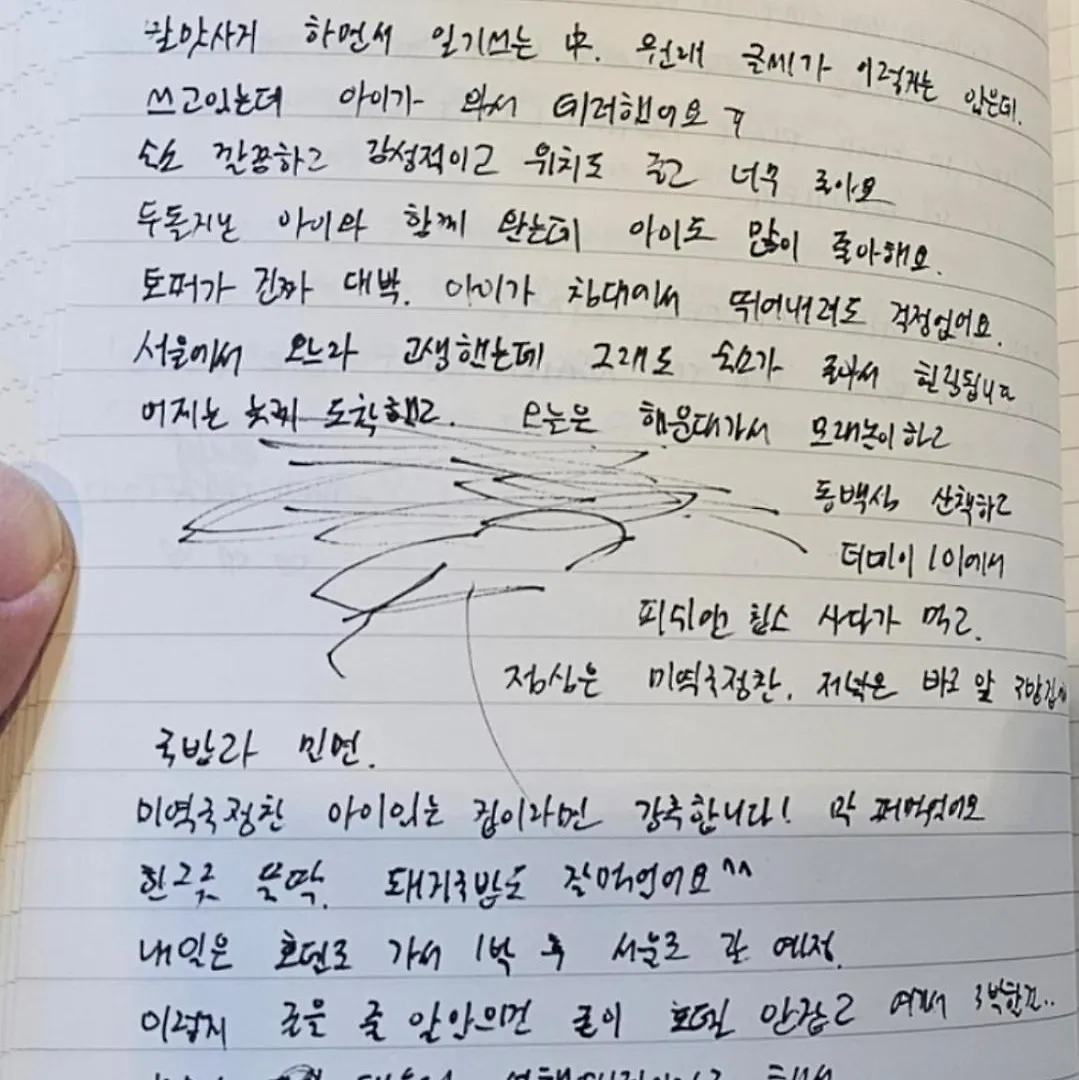 팔맛사지 하면서 일기쓰는 中. 원래 글씨가 이렇지는 않은데.
쓰고있는데 아이가 와서 테러했어요ㅋ
숙소 깔끔하고 감성적이고 위치도 좋고 너무 좋아요
두돌지난 아이와 함께 왔는데 아이도 많이 좋아해요.
토퍼가 진짜 대박. 아이가 침대에서 뛰어내려도 걱정없어요.
서울에서 오느라 고생했는데 그래도 숙소가 좋아서 힐링됩니다
어제는 늦게 도착했고. 오늘은 해운대가서 모래놀이하고
동백섬 산책하고
더베이101에서
피쉬앤 칩스 사다가 먹고.
점심은 미역국정찬. 저녁은 바로 앞 국밥집에서
국밥과 밀면.
미역국정찬 아이있는 집이라면 강추합니다! 막 퍼먹었어요
한그릇 뚝딱. 돼지국밥도 잘먹었어요^^
내일은 호텔로 가서 1박 후 서울로 갈 예정.
이럴줄 알았으면 호텔 안잡고 여기서 3박할걸..